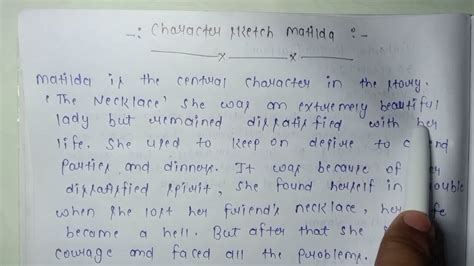 -: Character sketch Matilda :-
Matilda is the central character in the story.
'The Necklace' she was an extremely beautiful
lady but remained dissatisfied with her
life. She used to keep on desire to
parties and dinners. It was because of
dissatisfied spirit, she found herself in
when she lost her friend's necklace, her
become a hell. But after that she
courage and faced all the problems.